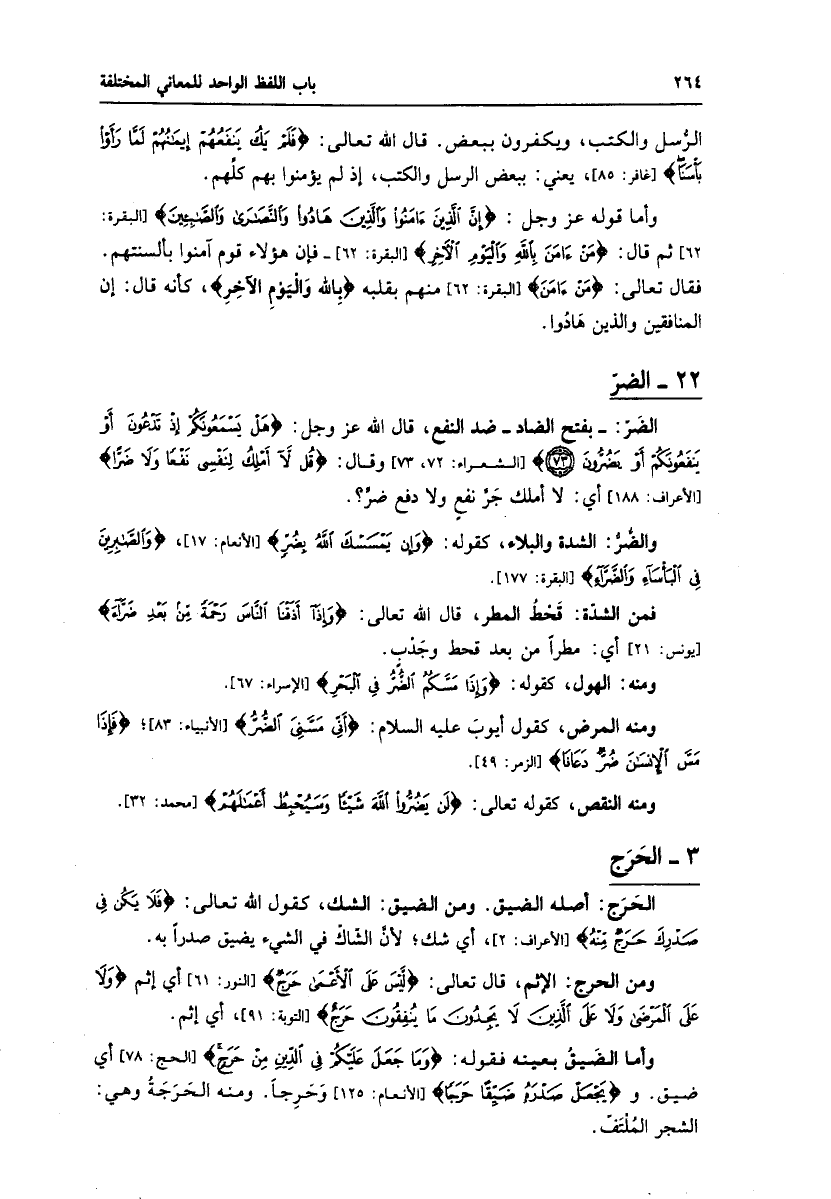 ٢٦٤ باب اللفظ الواحد للمعاني المختلفة
الرُّسل والكتب، ويكفرون ببعض. قال الله تعالى: ﴿فَلَمْ يَكُ يَنفَعُهُمْ إِيمَٰنُهُمْ لَمَّا رَأَوْا۟
بَأْسَنَا﴾ [غافر: ٨٥]، يعني: ببعض الرسل والكتب، إذ لم يؤمنوا بهم كلِّهم.
وأما قوله عز وجل : ﴿إِنَّ الَّذِينَ ءَامَنُوا۟ وَالَّذِينَ هَادُوا۟ وَالنَّصَٰرَىٰ وَالصَّٰبِـِٔينَ﴾ [البقرة:
٦٢] ثم قال: ﴿مَنْ ءَامَنَ بِاللَّهِ وَالْيَوْمِ الْآخِرِ﴾ [البقرة: ٦٢] ـ فإن هؤلاء قوم آمنوا بألسنتهم.
فقال تعالى: ﴿مَنْ ءَامَنَ﴾ [البقرة: ٦٢] منهم بقلبه ﴿بِالله وَالْيَوْمِ الآخِرِ﴾، كأنه قال: إن
المنافقين والذين هَادُوا.
٢٢ ـ الضرّ
الضَرّ: ـ بفتح الضاد ـ ضد النفع، قال الله عز وجل: ﴿هَلْ يَسْمَعُونَكُمْ إِذْ تَدْعُونَ أَوْ
يَنفَعُونَكُمْ أَوْ يَضُرُّونَ ٧٣﴾ [الشعراء: ٧٢، ٧٣] وقال: ﴿قُل لَّآ أَمْلِكُ لِنَفْسِى نَفْعًا وَلَا ضَرًّا﴾
[الأعراف: ١٨٨] أي: لا أملك جَرَّ نفعٍ ولا دفع ضرٍّ؟.
والضُّرُّ: الشدة والبلاء، كقوله: ﴿وَإِن يَمْسَسْكَ اللَّهُ بِضُرٍّ﴾ [الأنعام: ١٧]، ﴿وَالصَّٰبِرِينَ
فِى الْبَأْسَآءِ وَالضَّرَّآءِ﴾ [البقرة: ١٧٧].
فمن الشدّة: قَحْطُ المطر، قال الله تعالى: ﴿وَإِذَآ أَذَقْنَا النَّاسَ رَحْمَةً مِّنۢ بَعْدِ ضَرَّآءَ﴾
[يونس: ٢١] أي: مطراً من بعد قحط وجَدْبٍ.
ومنه: الهول، كقوله: ﴿وَإِذَا مَسَّكُمُ الضُّرُّ فِى الْبَحْرِ﴾ [الإسراء: ٦٧].
ومنه المرض، كقول أيوبَ عليه السلام: ﴿أَنِّى مَسَّنِىَ الضُّرُّ﴾ [الأنبياء: ٨٣]؛ ﴿فَإِذَا
مَسَّ الْإِنسَٰنَ ضُرٌّ دَعَانَا﴾ [الزمر: ٤٩].
ومنه النقص، كقوله تعالى: ﴿لَن يَضُرُّوا۟ اللَّهَ شَيْئًا وَسَيُحْبِطُ أَعْمَٰلَهُمْ﴾ [محمد: ٣٢].
٣ ـ الحَرَج
الحَرَج: أصله الضيق. ومن الضيق: الشك، كقول الله تعالى: ﴿فَلَا يَكُن فِى
صَدْرِكَ حَرَجٌ مِّنْهُ﴾ [الأعراف: ٢]، أي شك؛ لأنَّ الشّاكّ في الشيء يضيق صدراً به.
ومن الحرج: الإثم، قال تعالى: ﴿لَّيْسَ عَلَى الْأَعْمَىٰ حَرَجٌ﴾ [النور: ٦١] أي إثم ﴿وَلَا
عَلَى الْمَرْضَىٰ وَلَا عَلَى الَّذِينَ لَا يَجِدُونَ مَا يُنفِقُونَ حَرَجٌ﴾ [التوبة: ٩١]، أي إثم.
وأما الضَيقُ بعينه فقوله: ﴿وَمَا جَعَلَ عَلَيْكُمْ فِى الدِّينِ مِنْ حَرَجٍ﴾ [الحج: ٧٨] أي
ضيق. و ﴿يَجْعَلْ صَدْرَهُ ضَيِّقًا حَرَجًا﴾ [الأنعام: ١٢٥] وَحَرِجاً. ومنه الحَرَجَةُ وهي:
الشجر المُلْتَفّ.